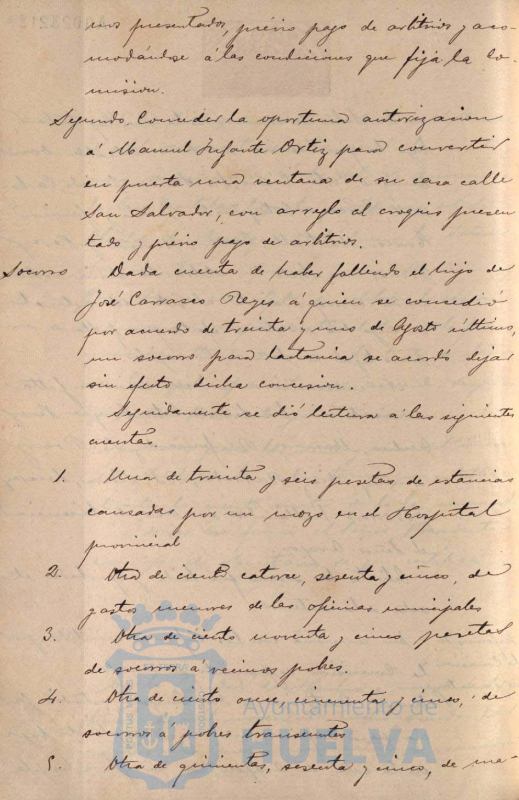 nos presentados, prévio pago de arbitrios y aco-
modándose á las condiciones que fija la Co-
mision.
Segundo. Conceder la oportuna autorizacion
á Manuel Infante Ortiz para convertir
en puerta una ventana de su casa calle
San Salvador, con arreglo al croquis presen
tado y prévio pago de arbitrios.
Socorro Dada cuenta de haber fallecido el hijo de
José Carrasco Reyes á quien se concedió
por acuerdo de treinta y uno de Agosto último,
un socorro para lactancia se acordó dejar
sin efecto dicha concesion.
Seguidamente se dió lectura á las siguientes
cuentas.
1. Una de treinta y seis pesetas de estancias
causadas por un mozo en el Hospital
provincial
2. Otra de ciento catorce, sesenta y cinco, de
gastos menores de las oficinas municipales
3. Otra de ciento noventa y cinco pesetas
de socorros á vecinos pobres.
4. Otra de ciento once, cincuenta y cinco, de
socorros á pobres transeuntes
5. Otra de quinientas, sesenta y cinco, de ma-
Ayuntamiento de
HUELVA